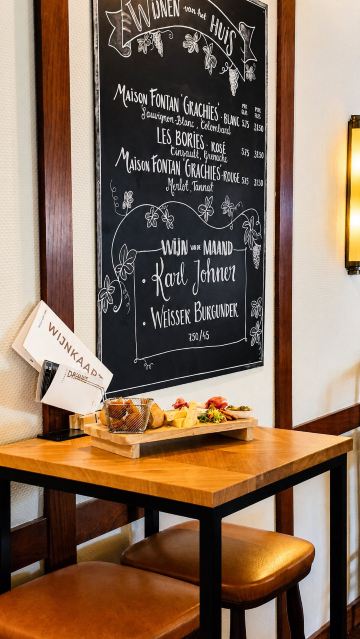 WIJNEN van het HUIS
PER GLAS PER FLES
MAISON FONTAN "GRACHIES" - BLANC 5.75 27.50
Sauvignon-Blanc, Colombard
LES BORIES - ROSÉ 5.75 27.50
Cinsault, Grenache
MAISON FONTAN "GRACHIES" - ROUGE 5.75 27.50
Merlot, Tannat
WIJN van de MAAND
• Karl Johner
• WEISSER BURGUNDER
7.50/45
WIJNKAART